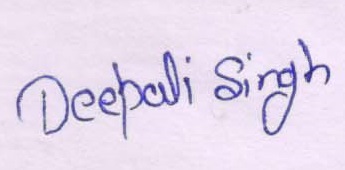 Deepali Singh